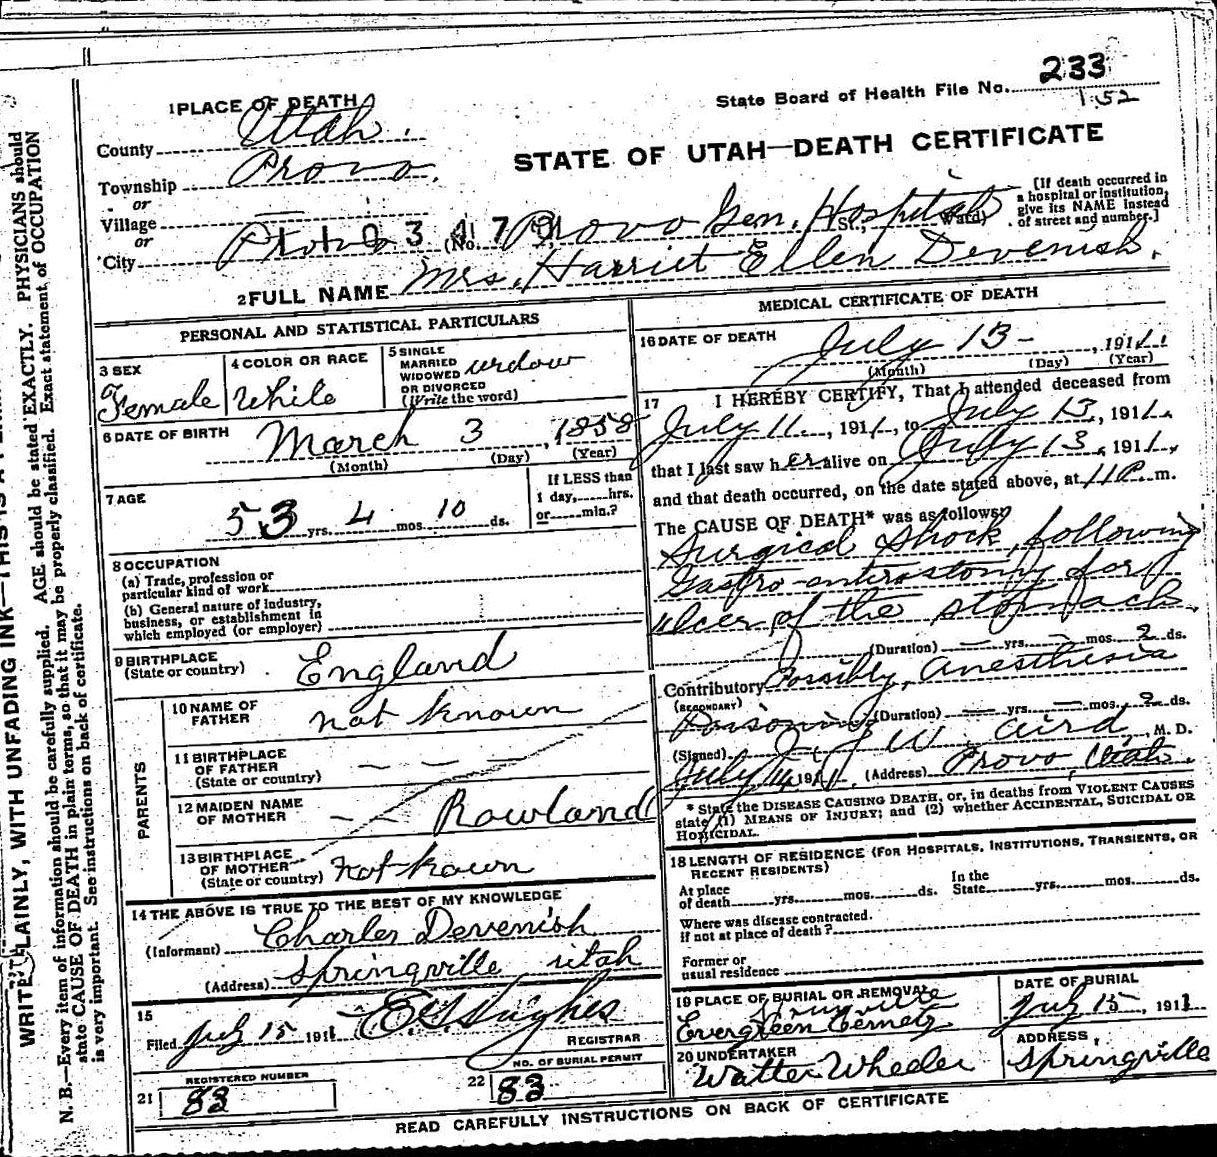 State Board of Health File No. 233
1 52
STATE OF UTAH—DEATH CERTIFICATE
1 PLACE OF DEATH
County Utah.
Township Provo.
or
Village —
or
City Provo (No. Provo Gen. Hospital St., Ward)
[If death occurred in
a hospital or institution,
give its NAME instead
of street and number.]
2 FULL NAME Mrs. Harriet Ellen Devenish.
PERSONAL AND STATISTICAL PARTICULARS
3 SEX
Female
4 COLOR OR RACE
White
5 SINGLE
MARRIED
WIDOWED
OR DIVORCED
(Write the word)
widow
6 DATE OF BIRTH March 3, 1858
(Month) (Day) (Year)
7 AGE
53 yrs. 4 mos. 10 ds.
If LESS than
1 day, hrs.
or min.?
8 OCCUPATION
(a) Trade, profession or
particular kind of work
(b) General nature of industry,
business, or establishment in
which employed (or employer)
9 BIRTHPLACE
(State or country) England
PARENTS
10 NAME OF
FATHER not known
11 BIRTHPLACE
OF FATHER
(State or country) — — —
12 MAIDEN NAME
OF MOTHER — — Rowland
13 BIRTHPLACE
OF MOTHER
(State or country) not known
14 THE ABOVE IS TRUE TO THE BEST OF MY KNOWLEDGE
(Informant) Charles Devenish
(Address) Springville Utah
15
Filed July 15 1911 E G Hughes
REGISTRAR
NO. OF BURIAL PERMIT
REGISTERED NUMBER
21 83
22 83
MEDICAL CERTIFICATE OF DEATH
16 DATE OF DEATH
July 13 — , 1911.
(Month) (Day) (Year)
17 I HEREBY CERTIFY, That I attended deceased from
July 11., 1911, to July 13, 1911.
that I last saw her alive on July 13, 1911,
and that death occurred, on the date stated above, at 11 P. m.
The CAUSE OF DEATH* was as follows:
Surgical shock, following
Gastro-enterostomy for
ulcer of the stomach.
(Duration) — yrs. — mos. 2 ds.
Contributory Possibly, Anesthesia
(SECONDARY)
Poisoning (Duration) — yrs. — mos. 2 ds.
(Signed) J. W. Aird, M. D.
July 14, 1911. (Address) Provo, Utah.
* State the DISEASE CAUSING DEATH, or, in deaths from VIOLENT CAUSES
state (1) MEANS OF INJURY; and (2) whether ACCIDENTAL, SUICIDAL OR
HOMICIDAL.
18 LENGTH OF RESIDENCE (FOR HOSPITALS, INSTITUTIONS, TRANSIENTS, OR
RECENT RESIDENTS)
At place
of death yrs. mos. ds.
In the
State yrs. mos. ds.
Where was disease contracted.
if not at place of death?
Former or
usual residence
19 PLACE OF BURIAL OR REMOVAL
Springville
Evergreen Cemety
DATE OF BURIAL
July 15, 1911
20 UNDERTAKER
Walter Wheeler
ADDRESS,
Springville
READ CAREFULLY INSTRUCTIONS ON BACK OF CERTIFICATE
WRITE PLAINLY, WITH UNFADING INK—THIS IS A
N. B.—Every item of information should be carefully supplied. AGE should be stated EXACTLY. PHYSICIANS should
state CAUSE OF DEATH in plain terms, so that it may be properly classified. Exact statement of OCCUPATION
is very important. See instructions on back of certificate.